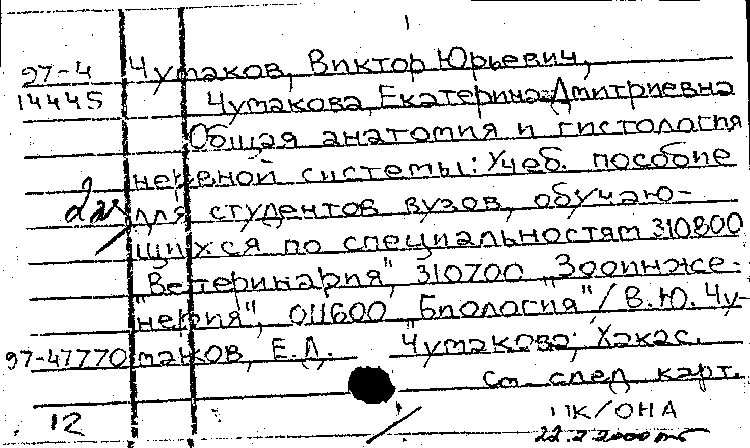 97-4 Чумаков, Виктор Юрьевич,
14445 Чумакова, Екатерина Дмитриевна
Общая анатомия и гистология
нервной системы: Учеб. пособие
2эк для студентов вузов, обучаю-
щихся по специальностям 310800
"Ветеринария", 310700 "Зооинже-
нерия", 011600 "Биология" / В.Ю. Чу-
97-47770 маков, Е.Д. Чумакова; Хакас.
См. след. карт.
12 ПК/ОНА